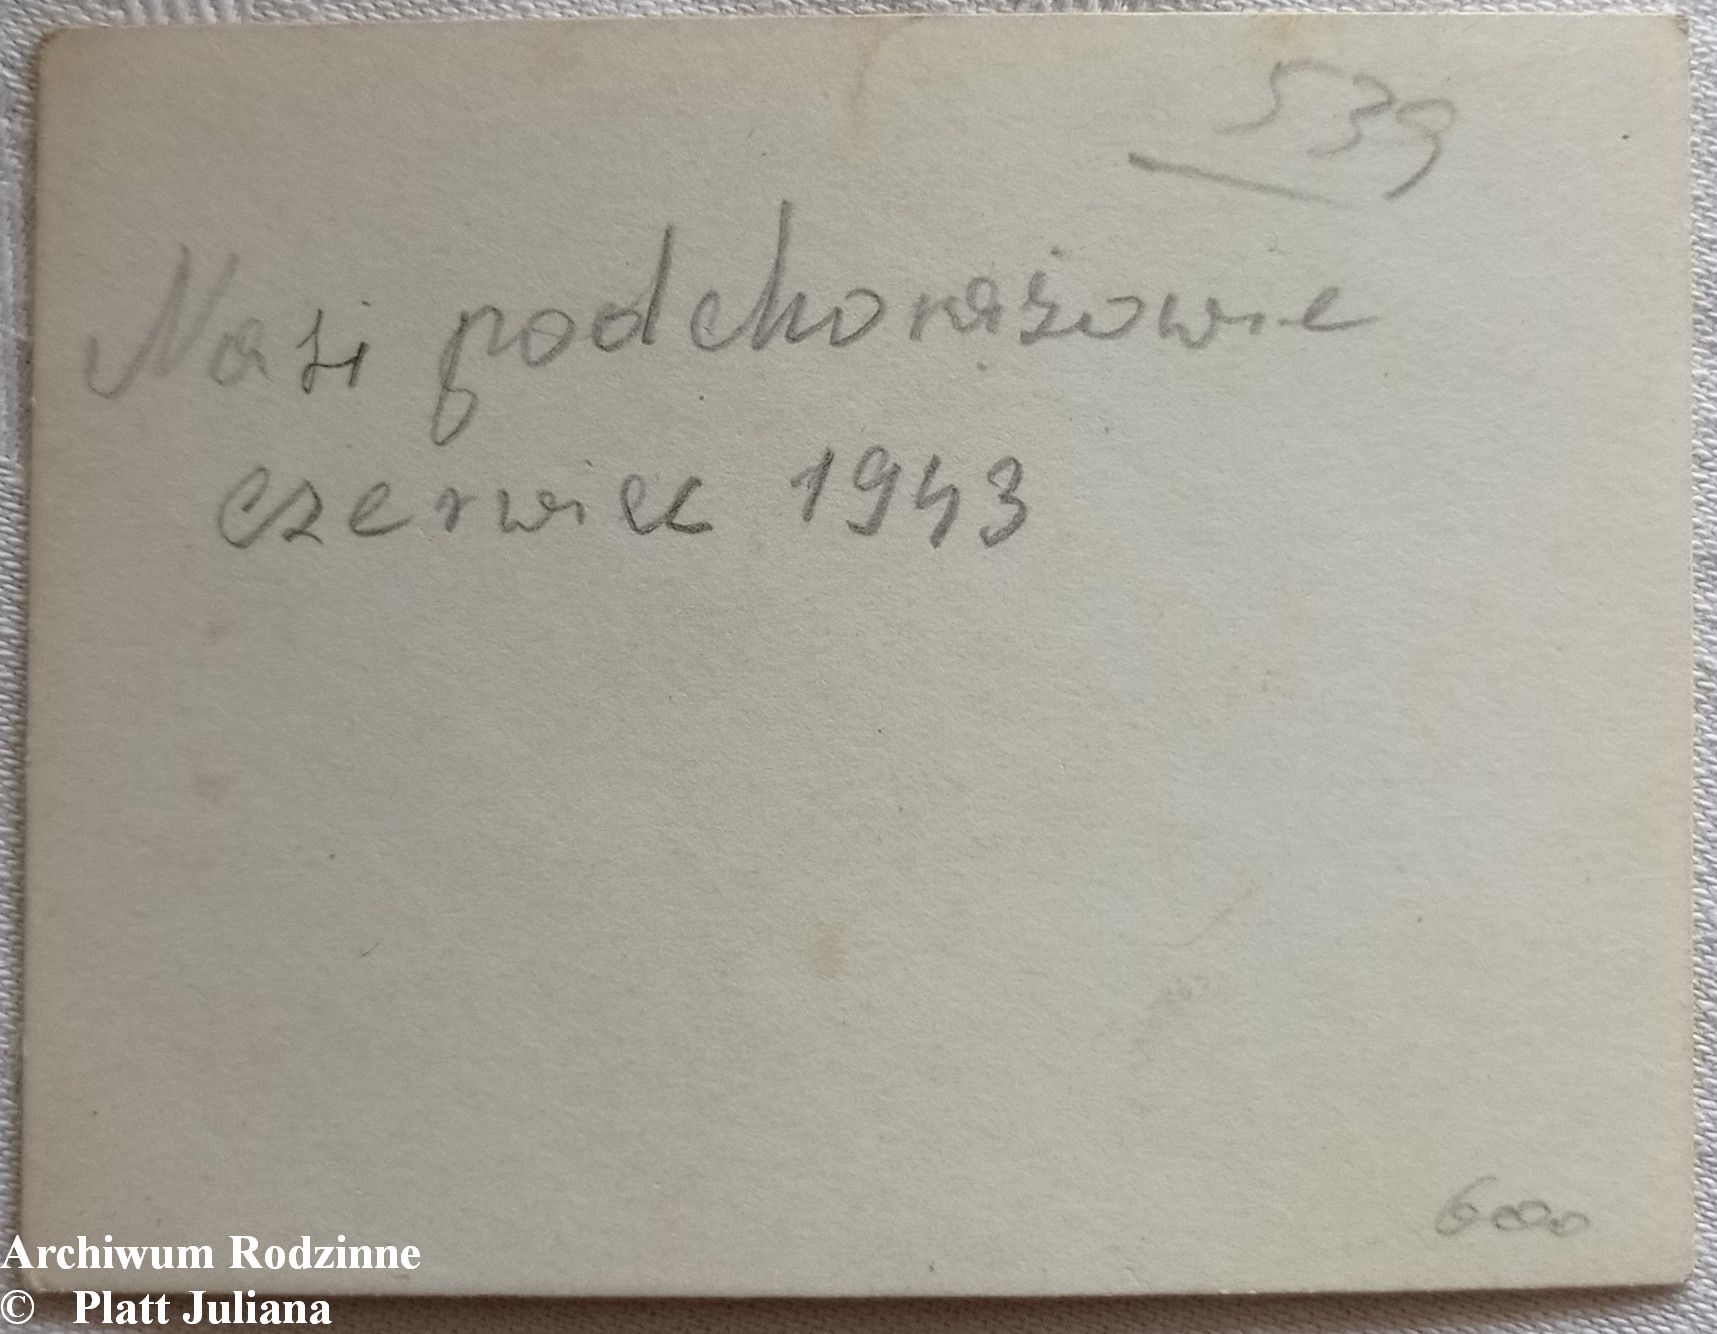 539
Nasi podchorążowie
czerwiec 1943
6000
Archiwum Rodzinne
© Platt Juliana